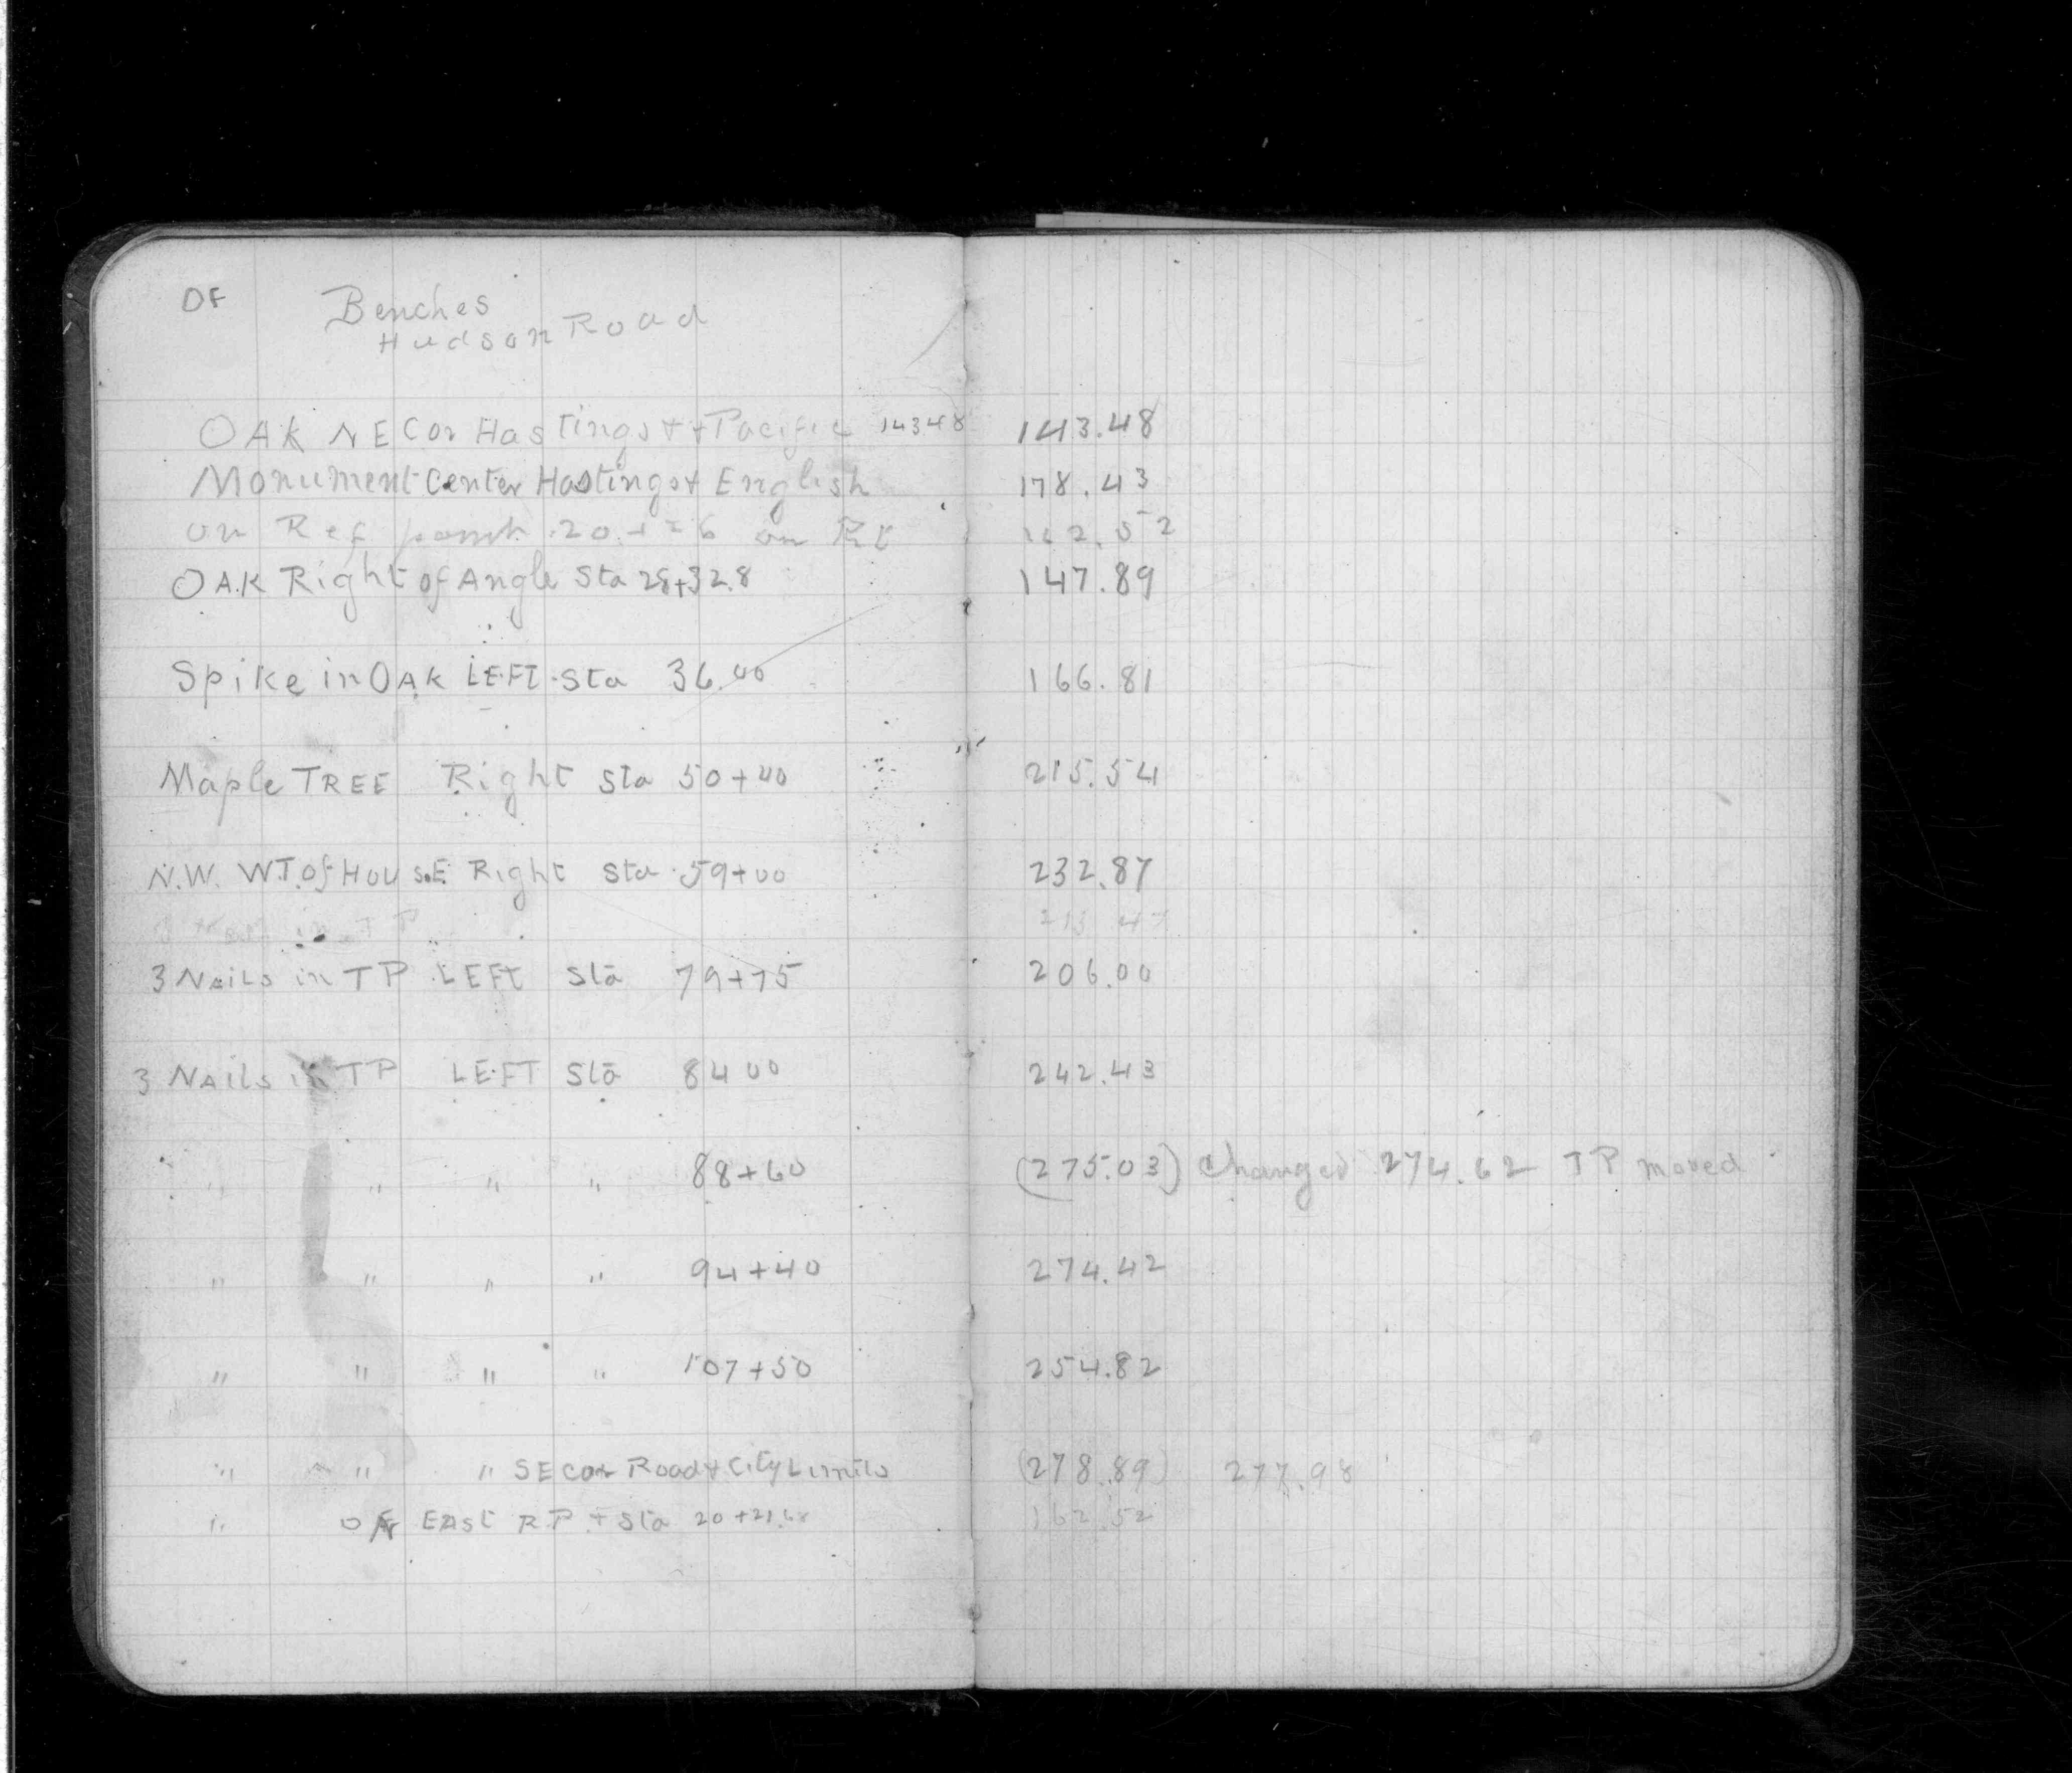 OF
Benches
Hudson Road
OAK NE Cor Hastings + Pacific 143.48 143.48
Monument Center Hastings + English 178.43
on Ref point 20+26 on Rt 162.52
OAK Right of Angle Sta 28+32.8 147.89
Spike in OAK LEFT Sta 36.00 166.81
Maple TREE Right Sta 50+40 215.54
N.W. W.T. of HOUSE Right Sta 59+00 232.87
in TP 213.47
3 Nails in TP LEFT Sta 79+75 206.00
3 NAils in TP LEFT Sta 84 00 242.43
" " " " 88+60 (275.03) Changed 274.62 TP moved
" " " " 94+40 274.42
" " " " 107+50 254.82
" " " SE cor Road + City Limits (278.89) 277.98
" EAst R.P. + Sta 20+21.68 162.52